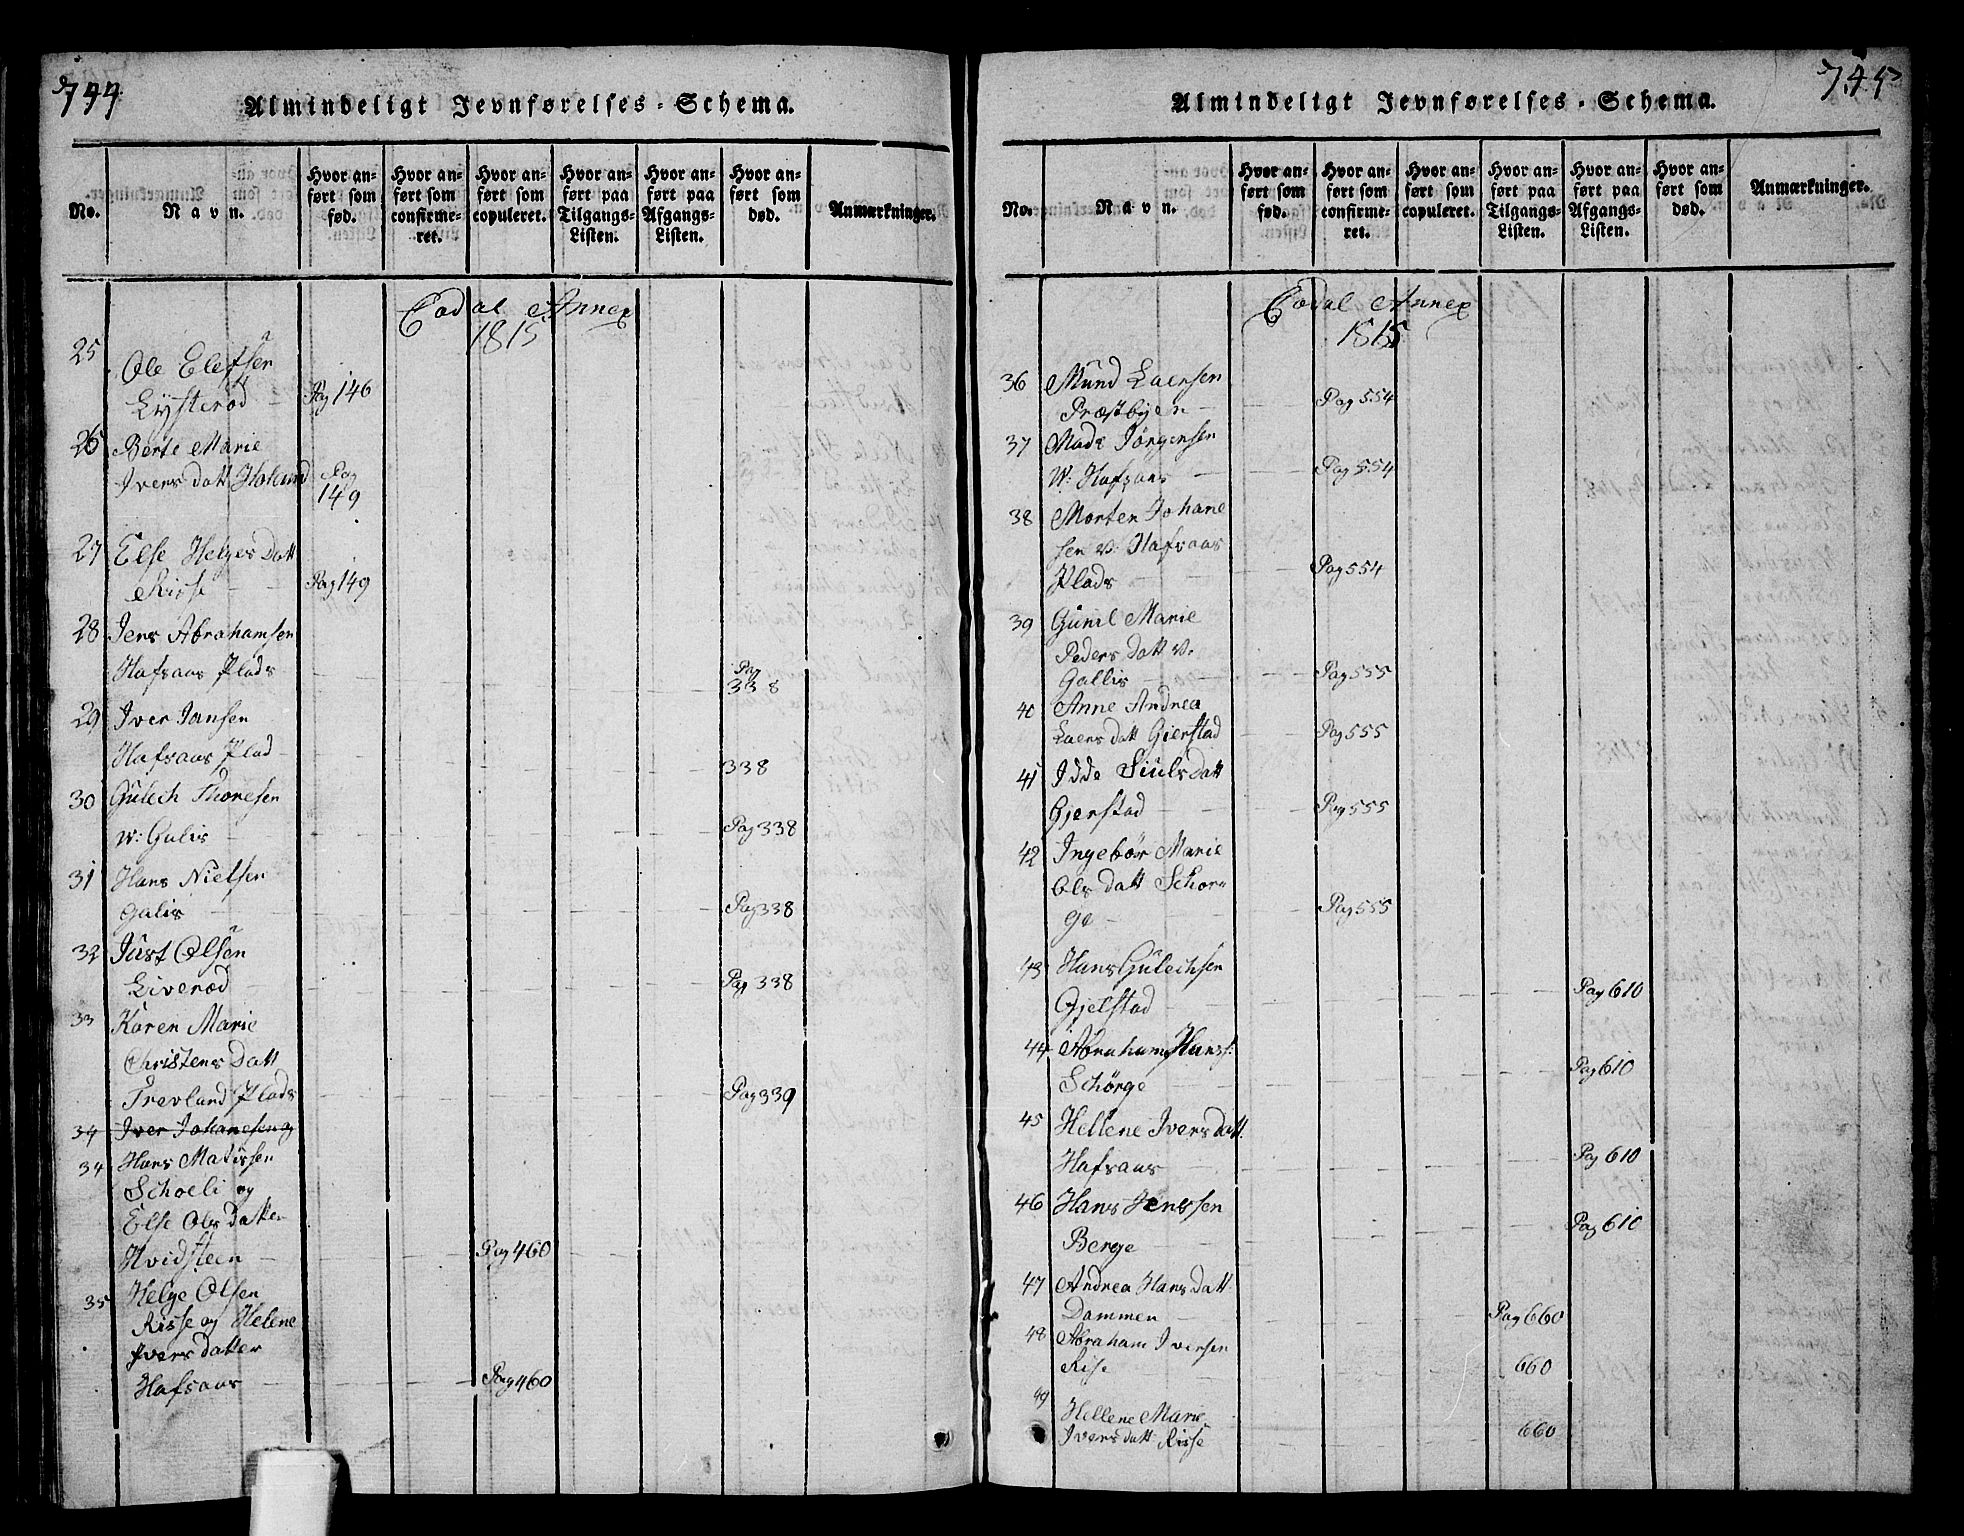 744.
Almindeligt Jevnførelses-Schema.
No.
Navn.
Hvor anført som fød.
Hvor anført som confirmeret.
Hvor anført som copuleret.
Hvor anført paa Tilgangs-Listen.
Hvor anført paa Afgangs-Listen.
Hvor anført som død.
Anmærkninger.
Eodal Annex
1815
25 Ole Elefsen
Lysterød Pag 146
26 Berte Marie
Ivers datt Holand Pag
149
27 Else Helges Datt
Risse Pag 149
28 Jens Abrahamsen
Hafsaas Plads Pag
338
29 Iver Jansen
Hafsaas Plad 338
30 Gulech Thoresen
W: Galis Pag 338
31 Hans Nielsen
Galis Pag 338
32 Just Olsen
Liverød Pag 338
33 Karen Marie
Christens Datt
Trevland Plads Pag 339
34 Iver Johanesen og
34 Hans Matissen
Schoeli og
Else Ols datter
Hvidsteen Pag 460
35 Helge Olsen
Risse og Helene
Ivers datter
Hafsaas Pag 460
745
Almindeligt Jevnførelses-Schema.
No.
Navn.
Hvor anført som fød.
Hvor anført som confirmeret.
Hvor anført som copuleret.
Hvor anført paa Tilgangs-Listen.
Hvor anført paa Afgangs-Listen.
Hvor anført som død.
Anmærkninger.
Eodal Annex
1815
36 Mund Laersen
Præstbyen Pag 554
37 Mads Jörgensen
W: Hafsaas Pag 554
38 Morten Johane
sen v: Hafsaas
Plads Pag 554
39 Gunil Marie
Peders datt v.
Gallis Pag 555
40 Anne Andrea
Laers datt Gierstad Pag 555
41 Idde Siuls datt
Gjerstad Pag 555
42 Ingebör Marie
Ols datt Schor-
ge Pag 555
43 Hans Gulechsen
Gjelstad Pag 610
44 Abraham Hans:
Schörge Pag 610
45 Hellene Ivers datt.
Hafsaas Pag 610
46 Hans Jenssen
Berge Pag 610
47 Andrea Hans datt
Dammen Pag 660
48 Abraham Iversen
Rise 660
49 Hellene Marie
Ivers datt Risse 660